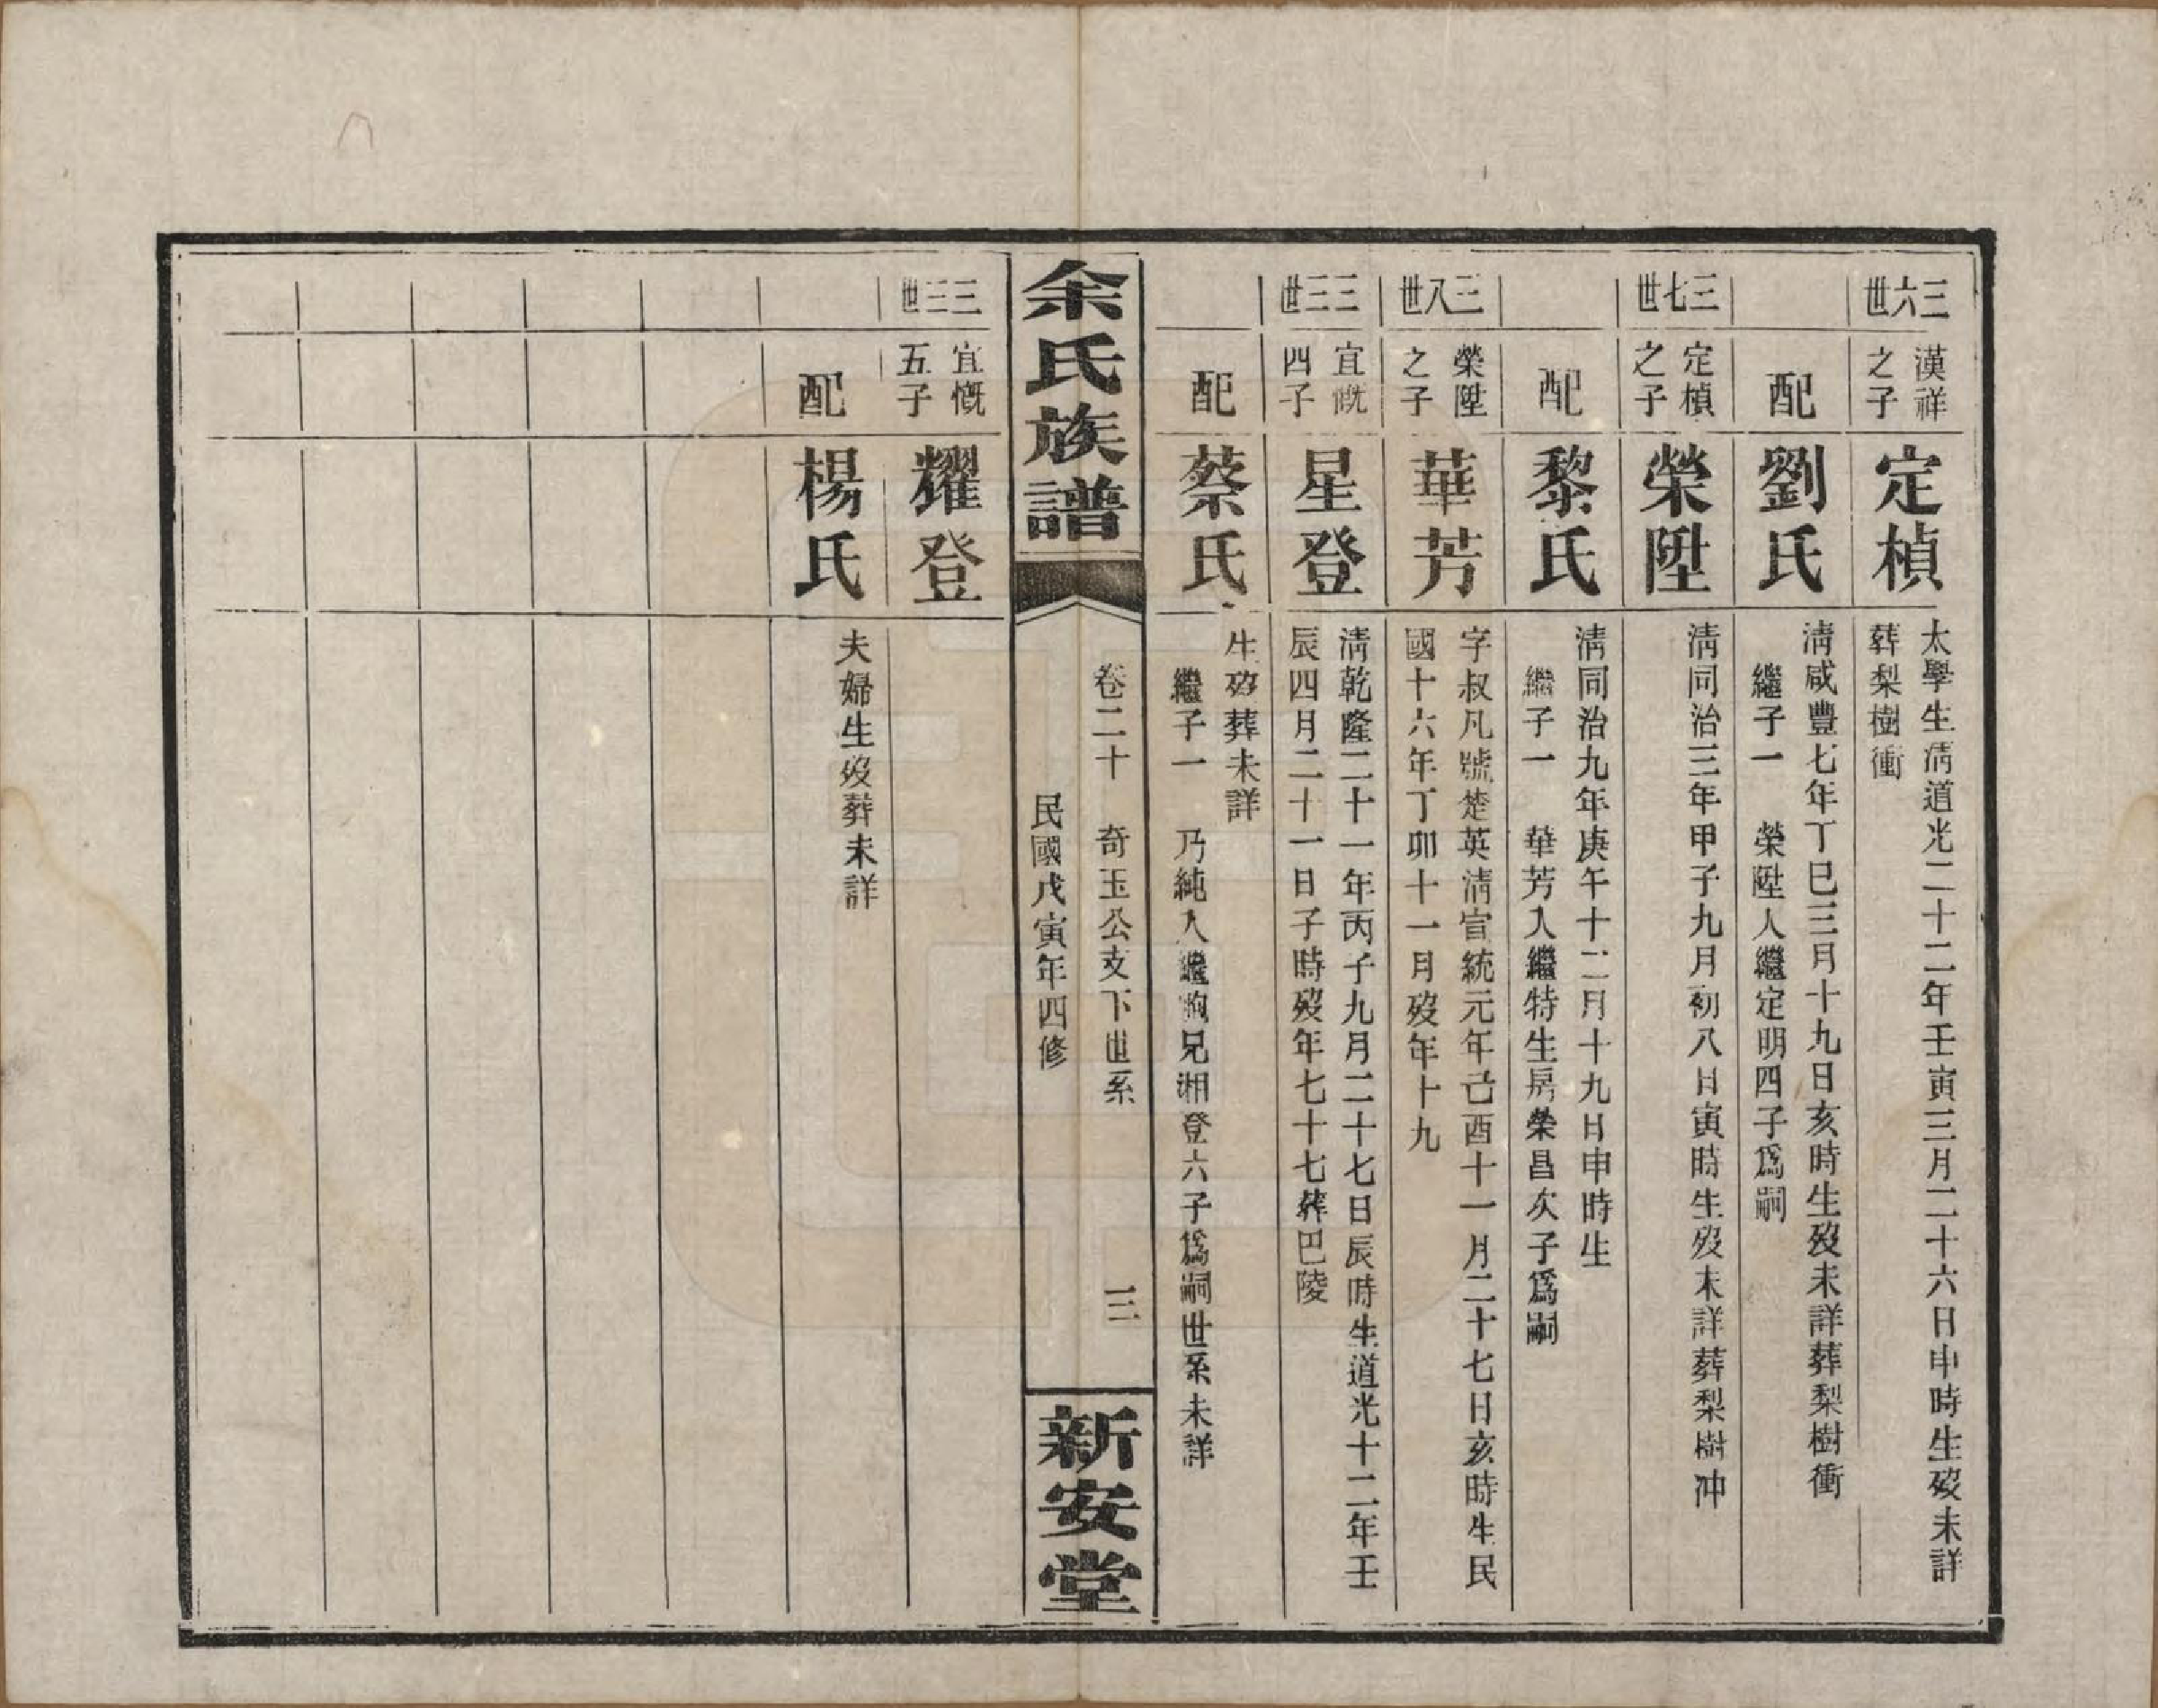 三六世
漢祥
之子
定楨
太學生淸道光二十二年壬寅三月二十六日申時生歿未詳
葬梨樹衝
配
劉氏
淸咸豐七年丁巳三月十九日亥時生歿未詳葬梨樹衝
繼子一 榮陞人繼定明四子爲嗣
三七世
定楨
之子
榮陞
淸同治三年甲子九月初八日寅時生歿未詳葬梨樹冲
配
黎氏
淸同治九年庚午十二月十九日申時生
繼子一 華芳入繼特生房榮昌次子爲嗣
三八世
榮陞
之子
華芳
字叔凡號楚英淸宣統元年己酉十一月二十七日亥時生民
國十六年丁卯十一月歿年十九
三三世
宜慨
四子
星登
淸乾隆二十一年丙子九月二十七日辰時生道光十二年壬
辰四月二十一日子時歿年七十七葬巴陵
配
蔡氏
生歿葬未詳
繼子一 乃純入繼胞兄湘登六子爲嗣世系未詳
余氏族譜
卷二十 奇玉公支下世系 三
民國戊寅年四修
新安堂
三三世
宜慨
五子
耀登
配
楊氏
夫婦生歿葬未詳